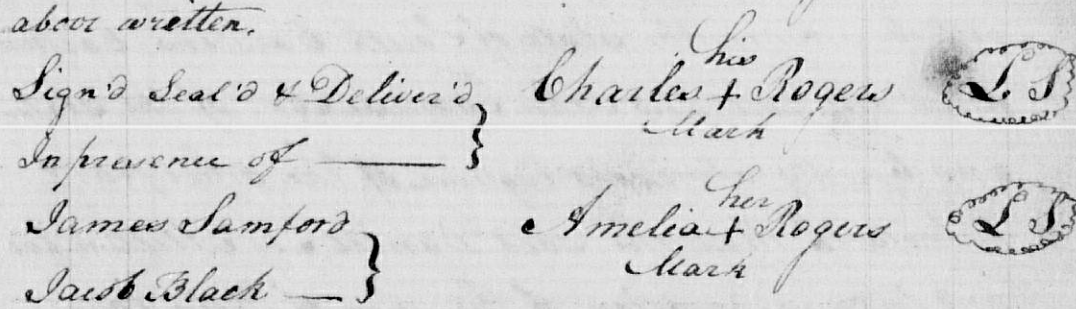 above written.
Sign'd Seal'd & Deliver'd
In presence of
James Samford
Jacob Black
his
Charles + Rogers
Mark
L S
her
Amelia + Rogers
Mark
L S